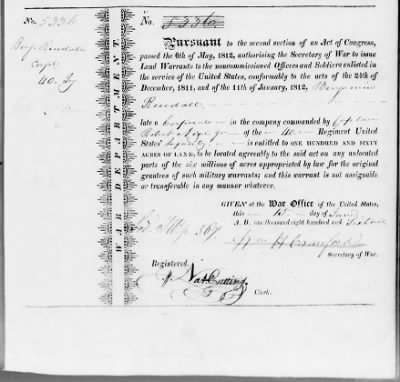 No. 5336
Benj. Kendall
Corpl
40. Inf
WAR DEPARTMENT.
No. 5336
Pursuant to the second section of an Act of Congress,
passed the 6th of May, 1812, authorising the Secretary of War to issue
Land Warrants to the noncommissioned Officers and Soldiers enlisted in
the service of the United States, conformably to the acts of the 24th of
December, 1811, and of the 11th of January, 1812, Benjamin
Kendall
late a Corporal in the company commanded by Captain
of the 40 Regiment United
States' Infantry is entitled to ONE HUNDRED AND SIXTY
ACRES OF LAND, to be located agreeably to the said act on any unlocated
parts of the six millions of acres appropriated by law for the original
grantees of such military warrants; and this warrant is not assignable
or transferable in any manner whatever.
GIVEN at the War Office of the United States,
this day of
A. D. one thousand eight hundred and Sixteen
567
Wm H Crawford
Secretary of War.
Registered.
Nat Cutting
Clerk.